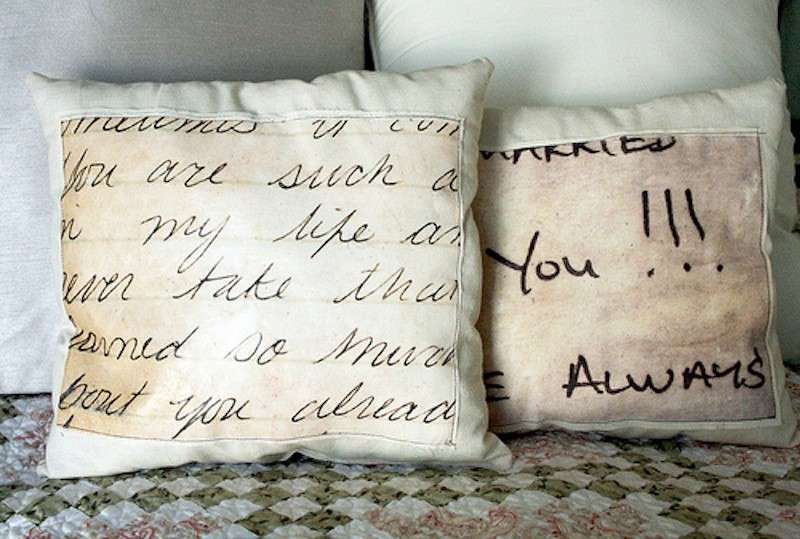 You are such a
my life an
ever take tha
earned so much
bout you alread
MARRIED
You !!!
E ALWAYS